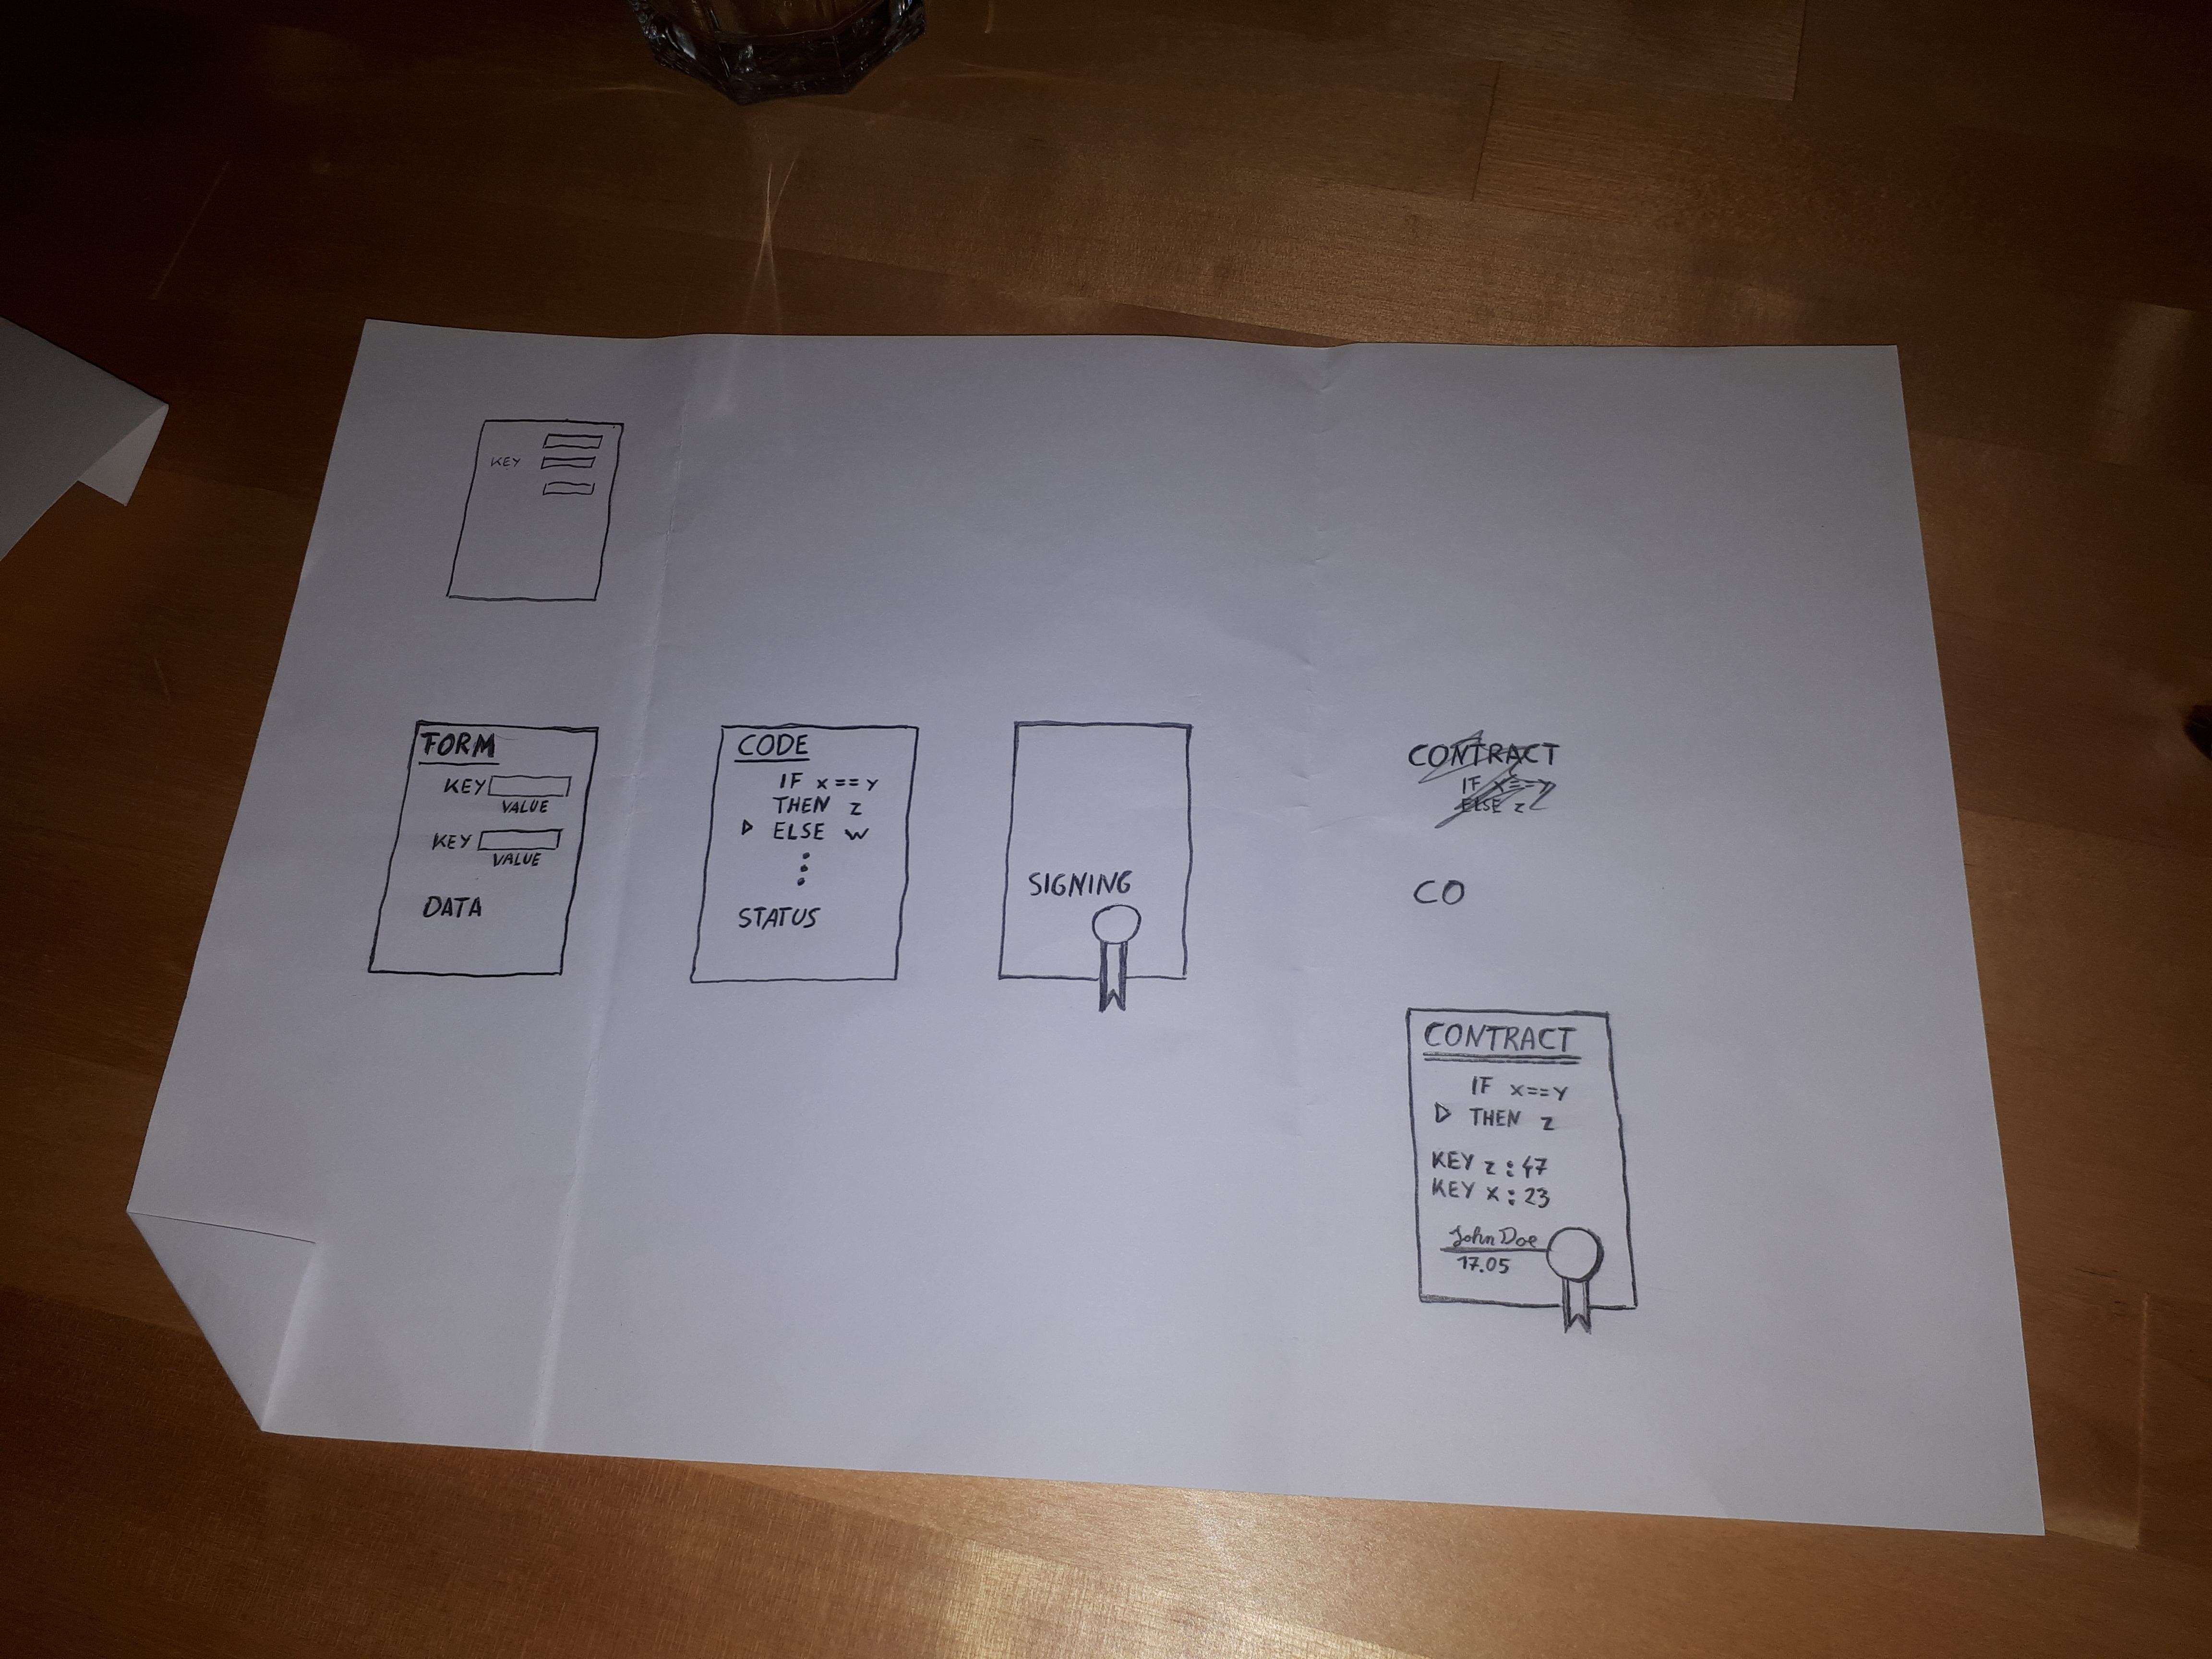 KEY
FORM
KEY
VALUE
KEY
VALUE
DATA
CODE
IF x == y
THEN z
ELSE w
STATUS
SIGNING
CONTRACT
IF x == y
ELSE z
CO
CONTRACT
IF x == y
THEN z
KEY z : 47
KEY x : 23
John Doe
17.05